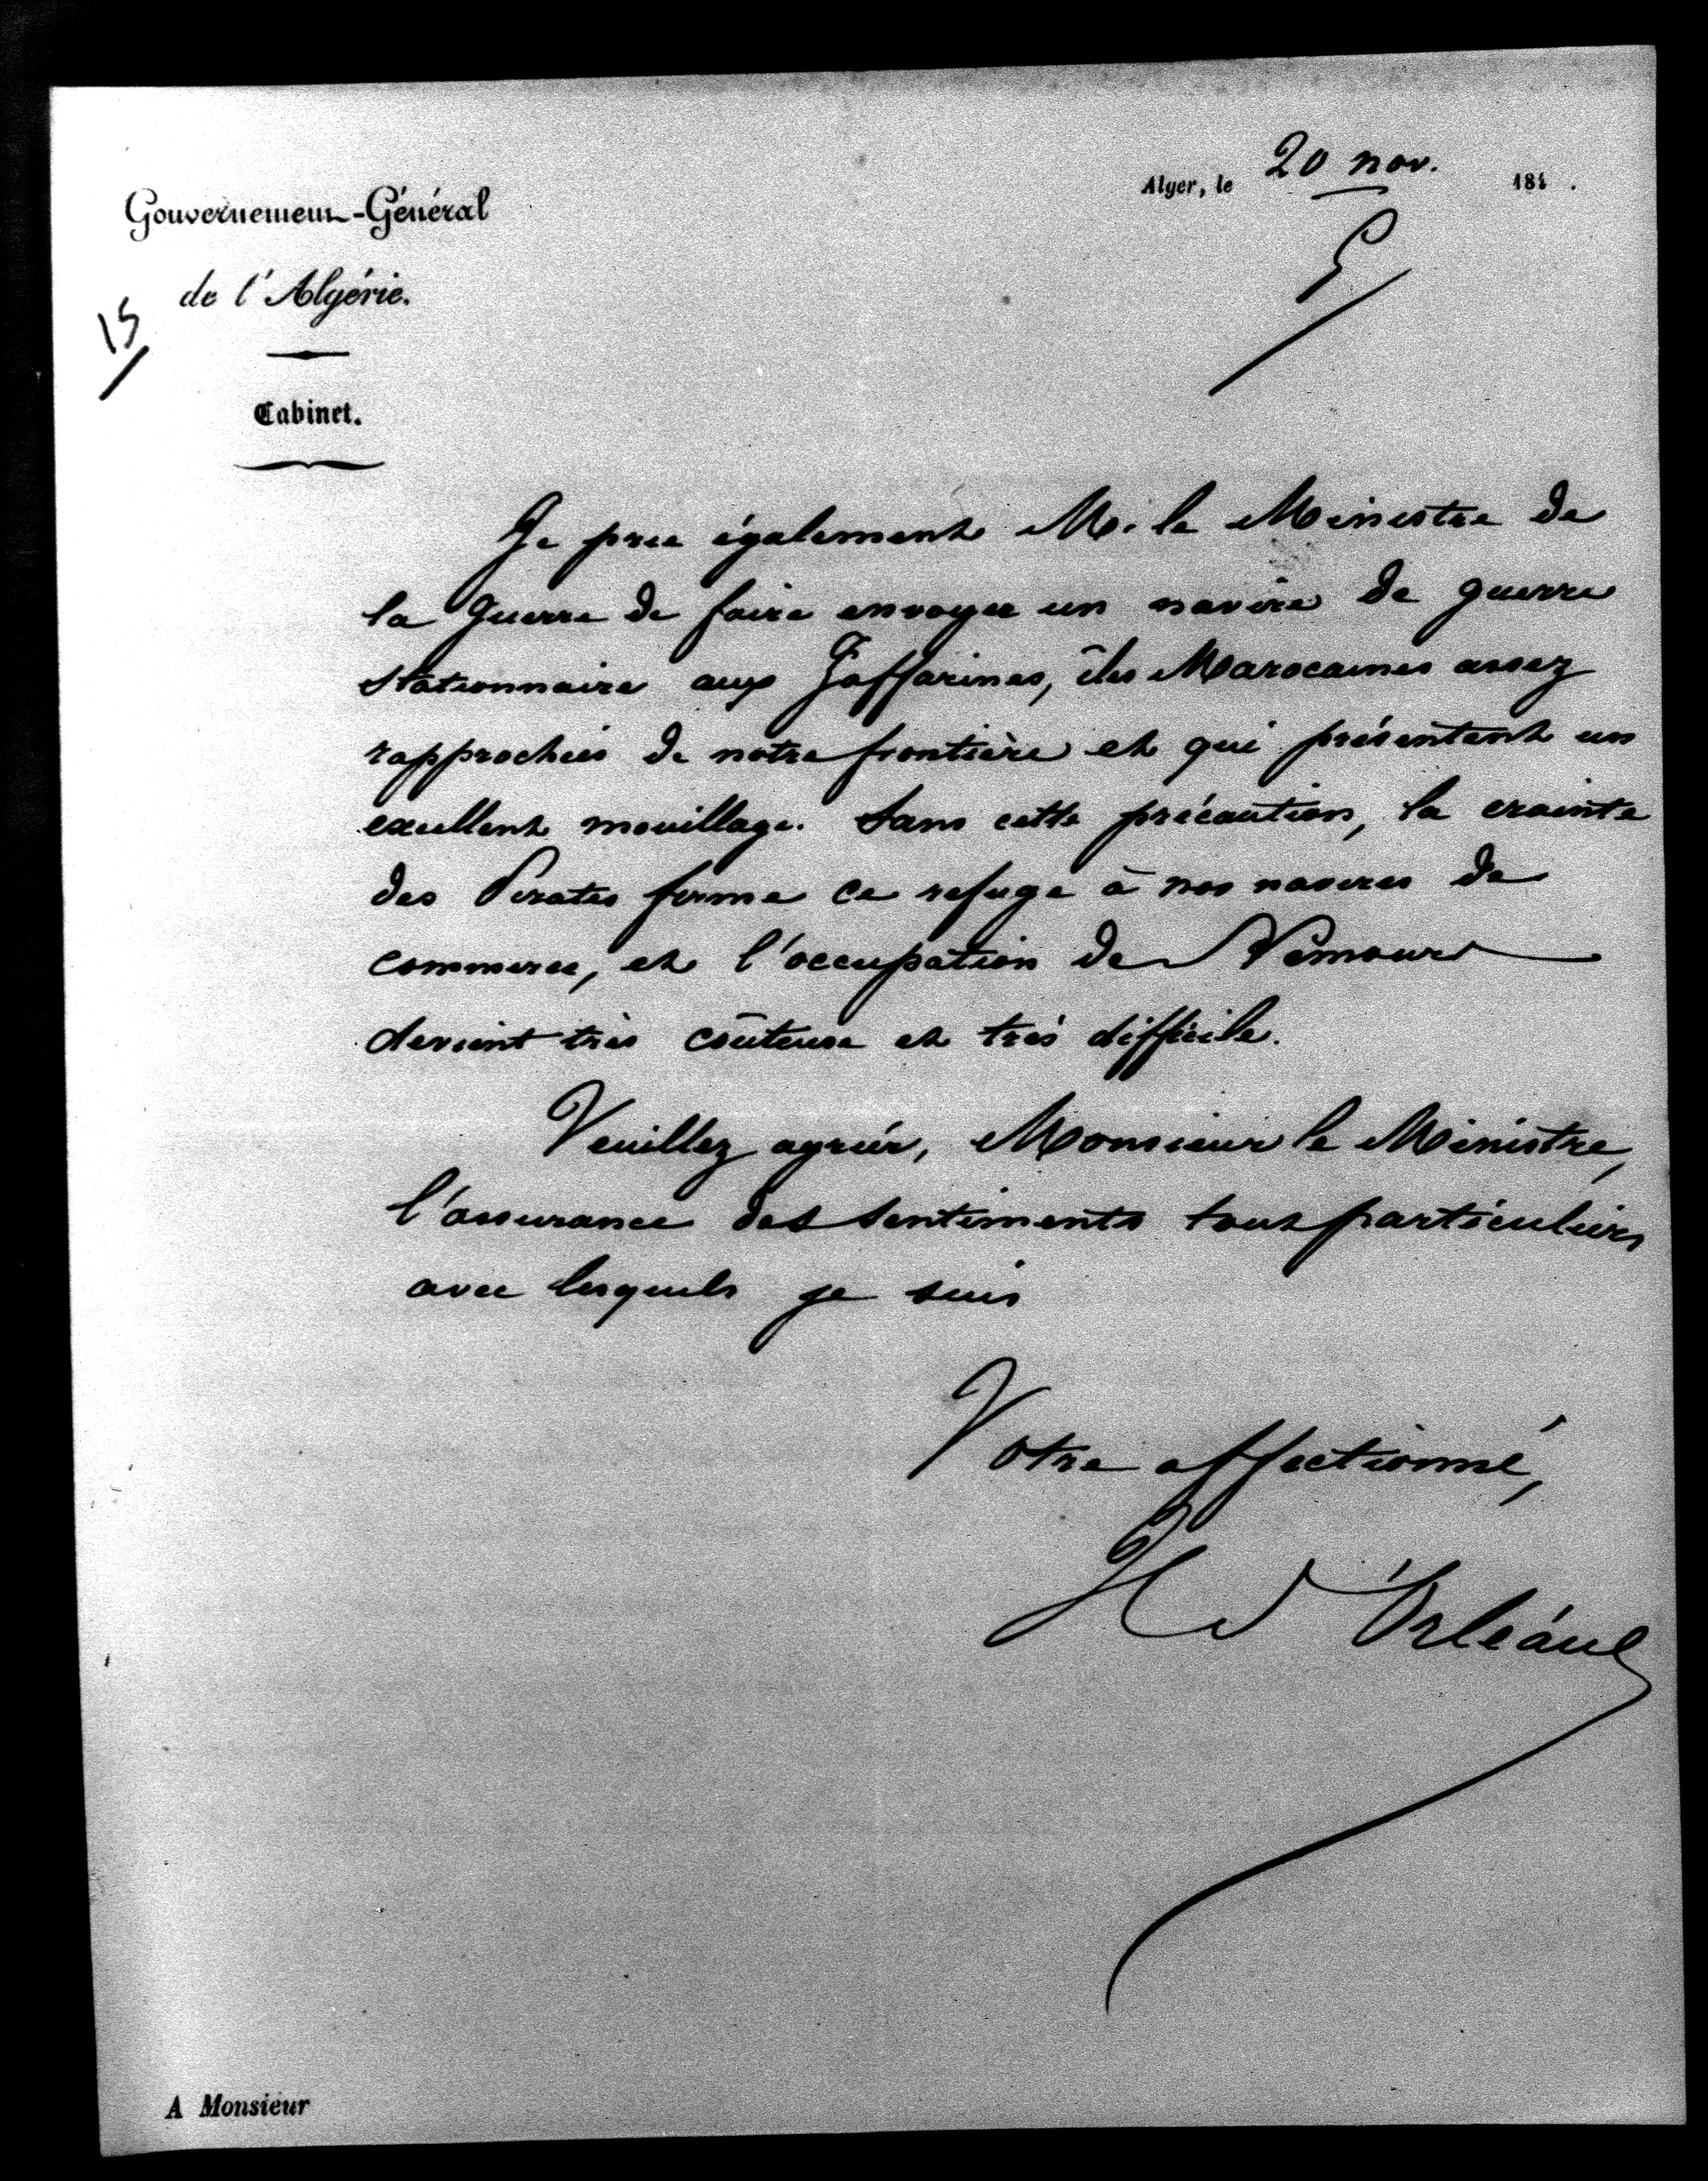 Alger, le 20 nov. 184 .
Gouvernement-Général
de l'Algérie.
15
Cabinet.
Je prie également M. le Ministre de
la Guerre de faire envoyer un navire de guerre
stationnaire aux Zaffarines, îles Marocaines assez
rapprochées de notre frontière et qui présentent un
excellent mouillage. Sans cette précaution, la crainte
des Pirates ferme ce refuge à nos navires de
commerce, et l'occupation de Nemours
devient très coûteuse et très difficile.
Veuillez agréer, Monsieur le Ministre,
l'assurance des sentiments tout particuliers
avec lesquels je suis
Votre affectionné,
H d'Orléans
A Monsieur